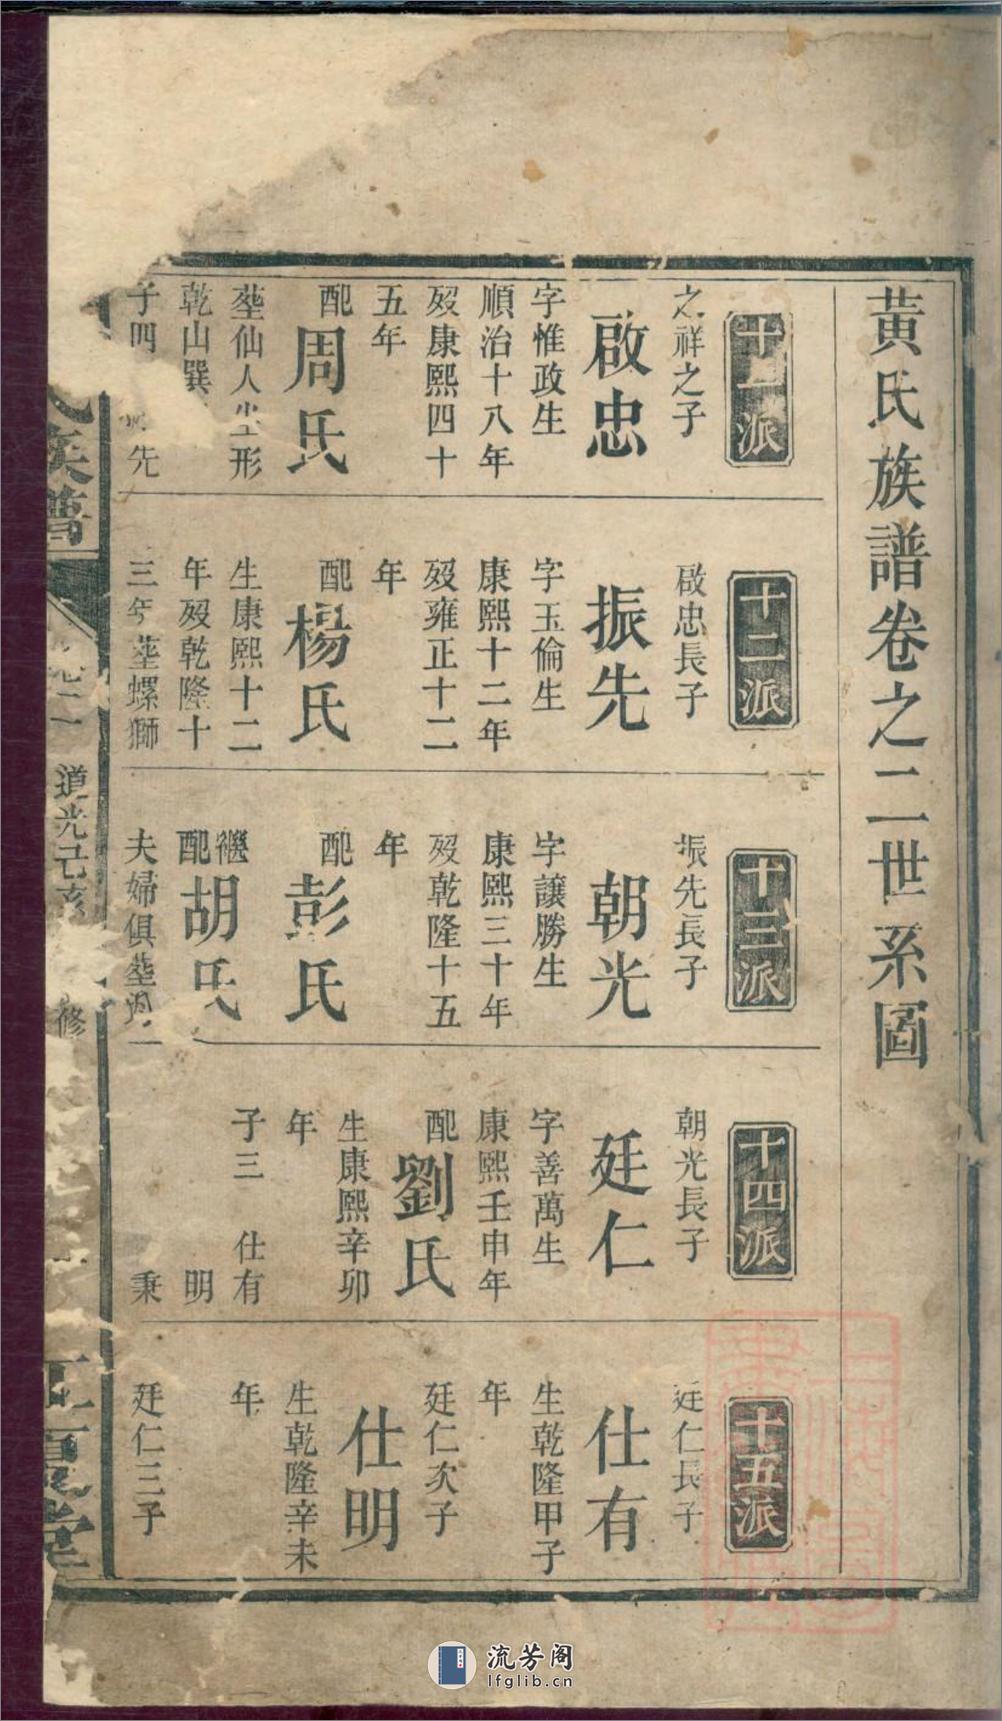 黃氏族譜卷之二世系圖
十一派
之祥之子
啟忠
字惟政生
順治十八年
歿康熙四十
五年
配周氏
塟仙人坐形
乾山巽
子四 先
十二派
啟忠長子
振先
字玉倫生
康熙十二年
歿雍正十二
年
配楊氏
生康熙十二
年歿乾隆十
三年塟螺獅
十三派
振先長子
朝光
字讓勝生
康熙三十年
歿乾隆十五
年
配彭氏
繼配胡氏
夫婦俱塟
十四派
朝光長子
廷仁
字善萬生
康熙壬申年
配劉氏
生康熙辛卯
年
子三 仕有
明
秉
十五派
廷仁長子
仕有
生乾隆甲子
年
廷仁次子
仕明
生乾隆辛未
年
廷仁三子
族譜
道光己亥
修
堂
流芳阁
lfglib.cn